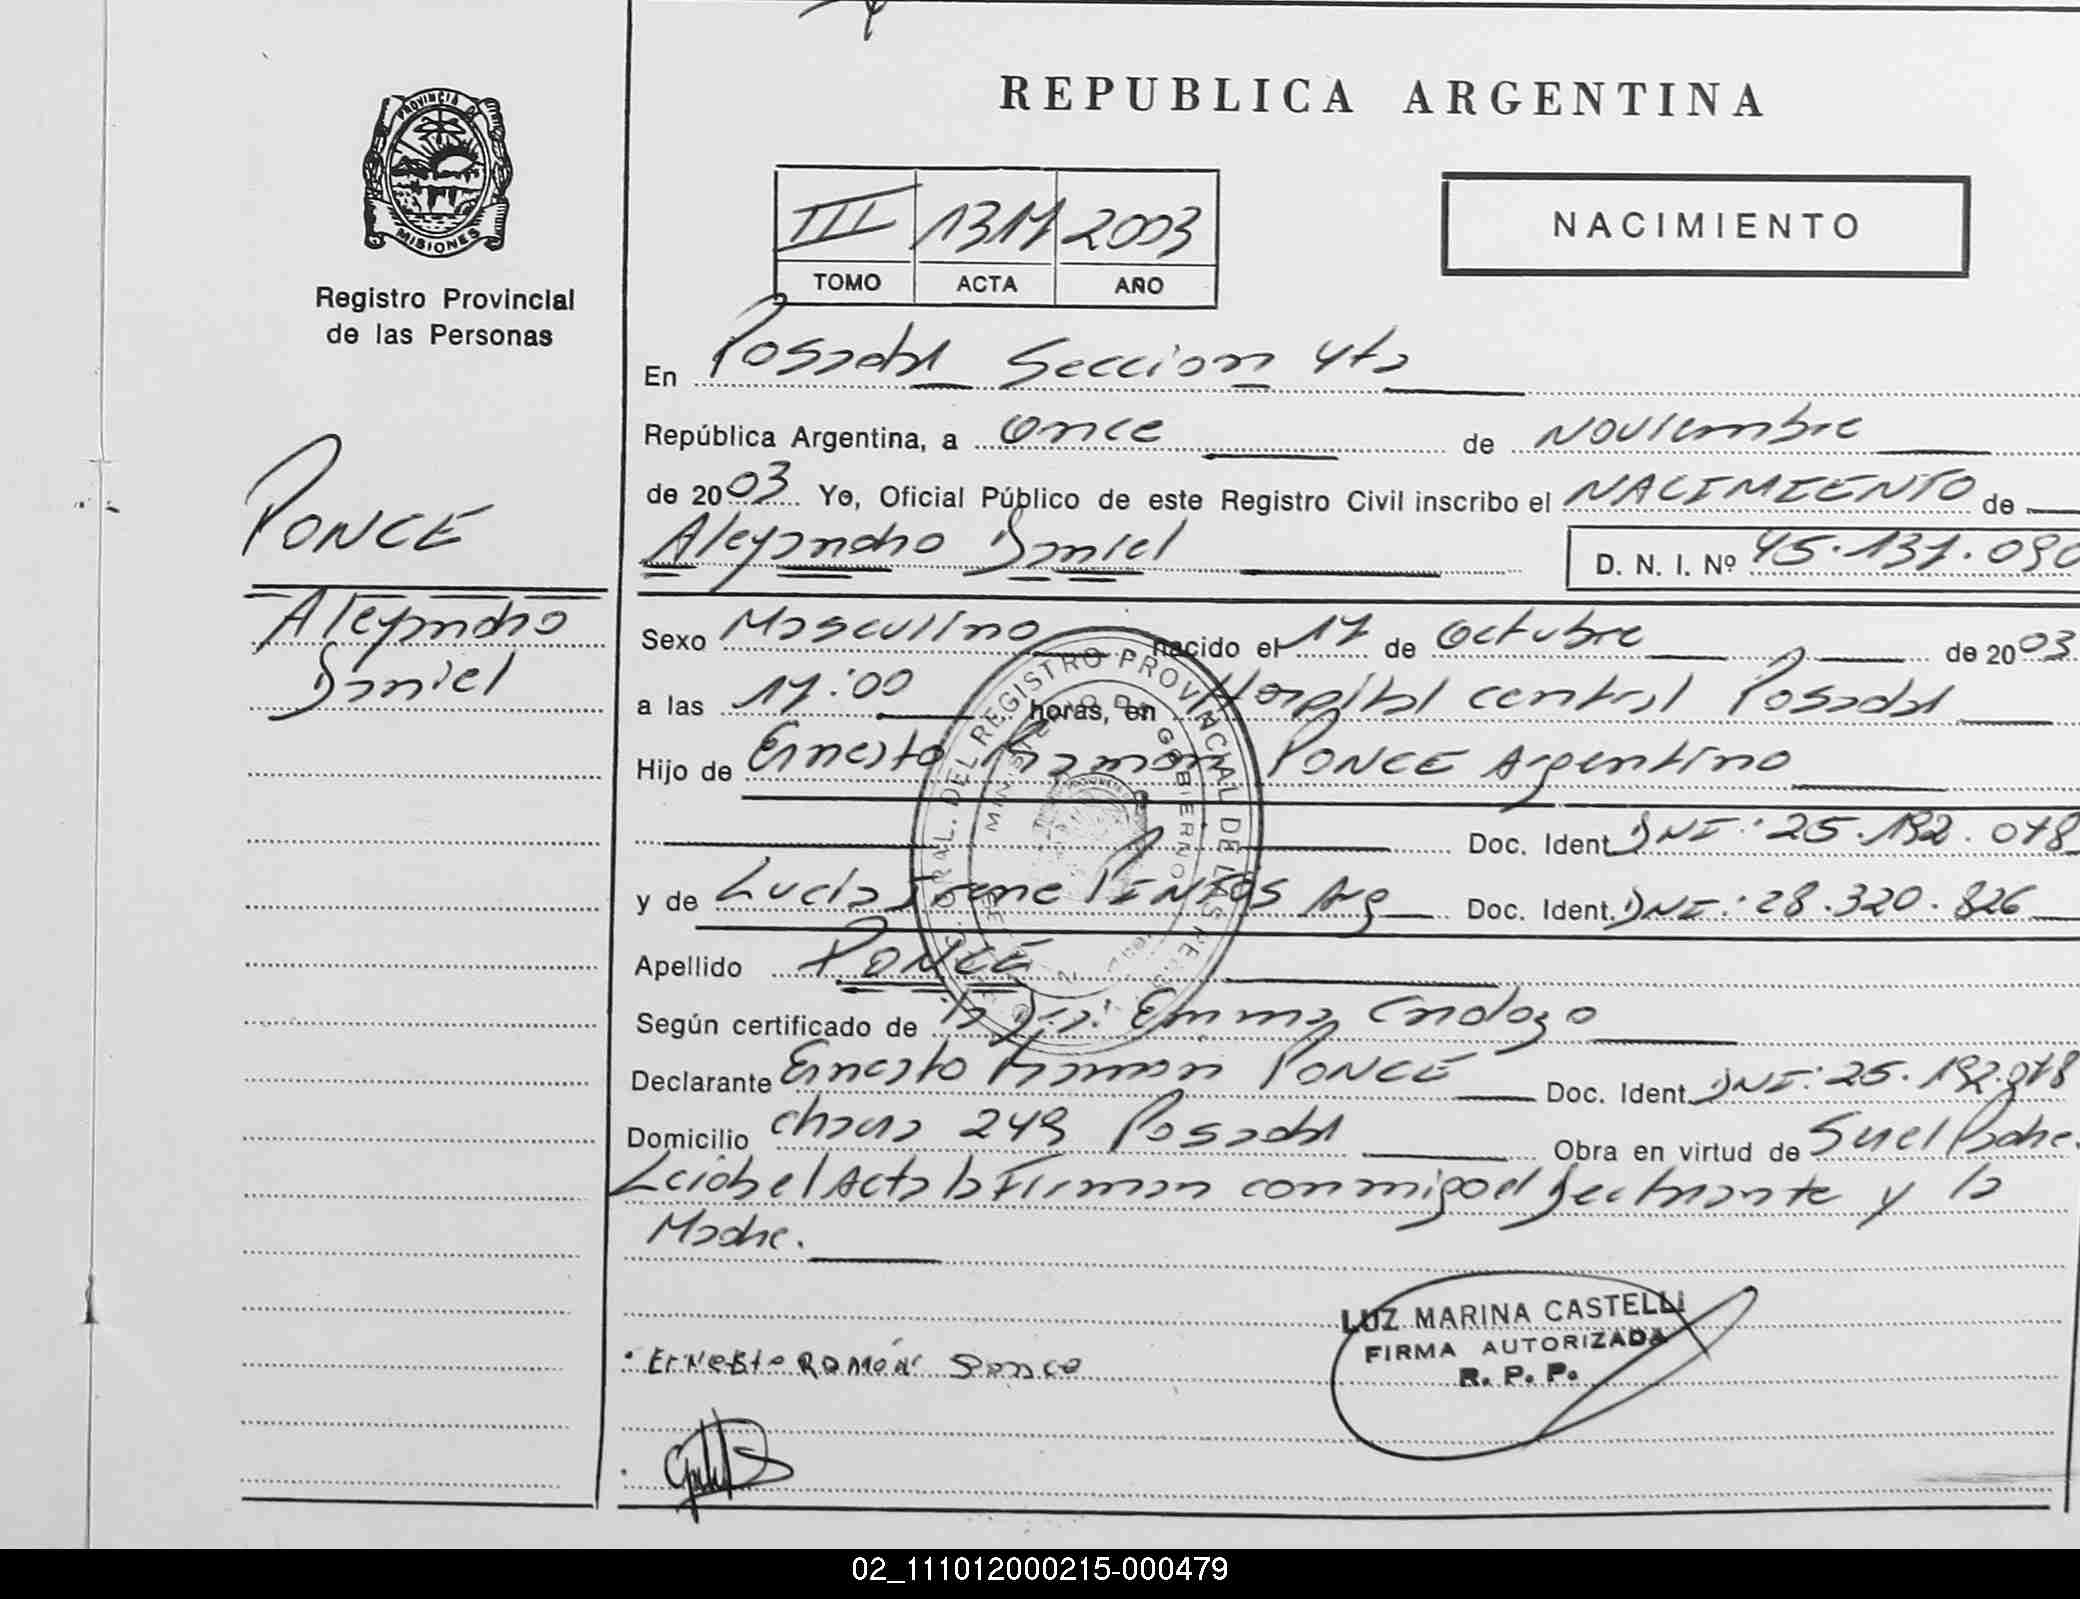 REPUBLICA ARGENTINA
PROVINCIA DE
MISIONES
Registro Provincial
de las Personas
NACIMIENTO
III 1317 2003
TOMO ACTA AÑO
En Posadas Seccion 4ta
República Argentina, a once de Noviembre
de 2003 Yo, Oficial Público de este Registro Civil inscribo el NACIMIENTO de
Alejandro Daniel
D. N. I. Nº 45.137.090
PONCE
Alejandro
Daniel
Sexo Masculino nacido el 17 de Octubre de 2003
a las 17:00 horas, en Hospital central Posadas
Hijo de Ernesto Ramon PONCE Argentino
Doc. Ident. DNI: 25.192.078
y de Lucia Irene PINTOS Arg Doc. Ident. DNI: 28.320.826
Apellido PONCE
Según certificado de la Dra. Emma
Declarante Ernesto Ramon PONCE Doc. Ident. DNI: 25.192.078
Domicilio chacra 249 Posadas Obra en virtud de Ser el Padre.
Leida el Acta la Firman conmigo el Declarante y la
Madre.
LUZ MARINA CASTELLI
FIRMA AUTORIZADA
R. P. P.
Ernesto Ramón Ponce
02_111012000215-000479